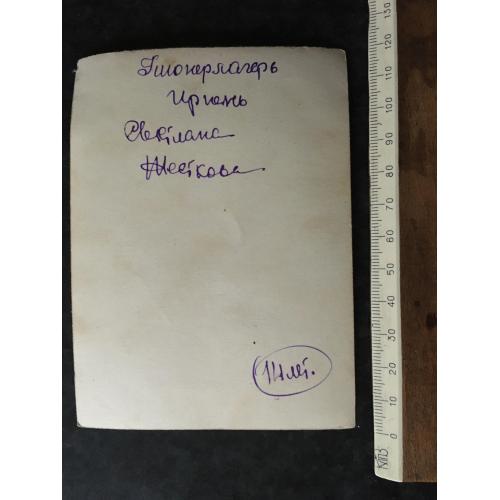 Пионерлагерь
Ирпень
Светлана
Жесткова
14 лет.
0 10 20 30 40 50 60 70 80 90 100 110 120 130